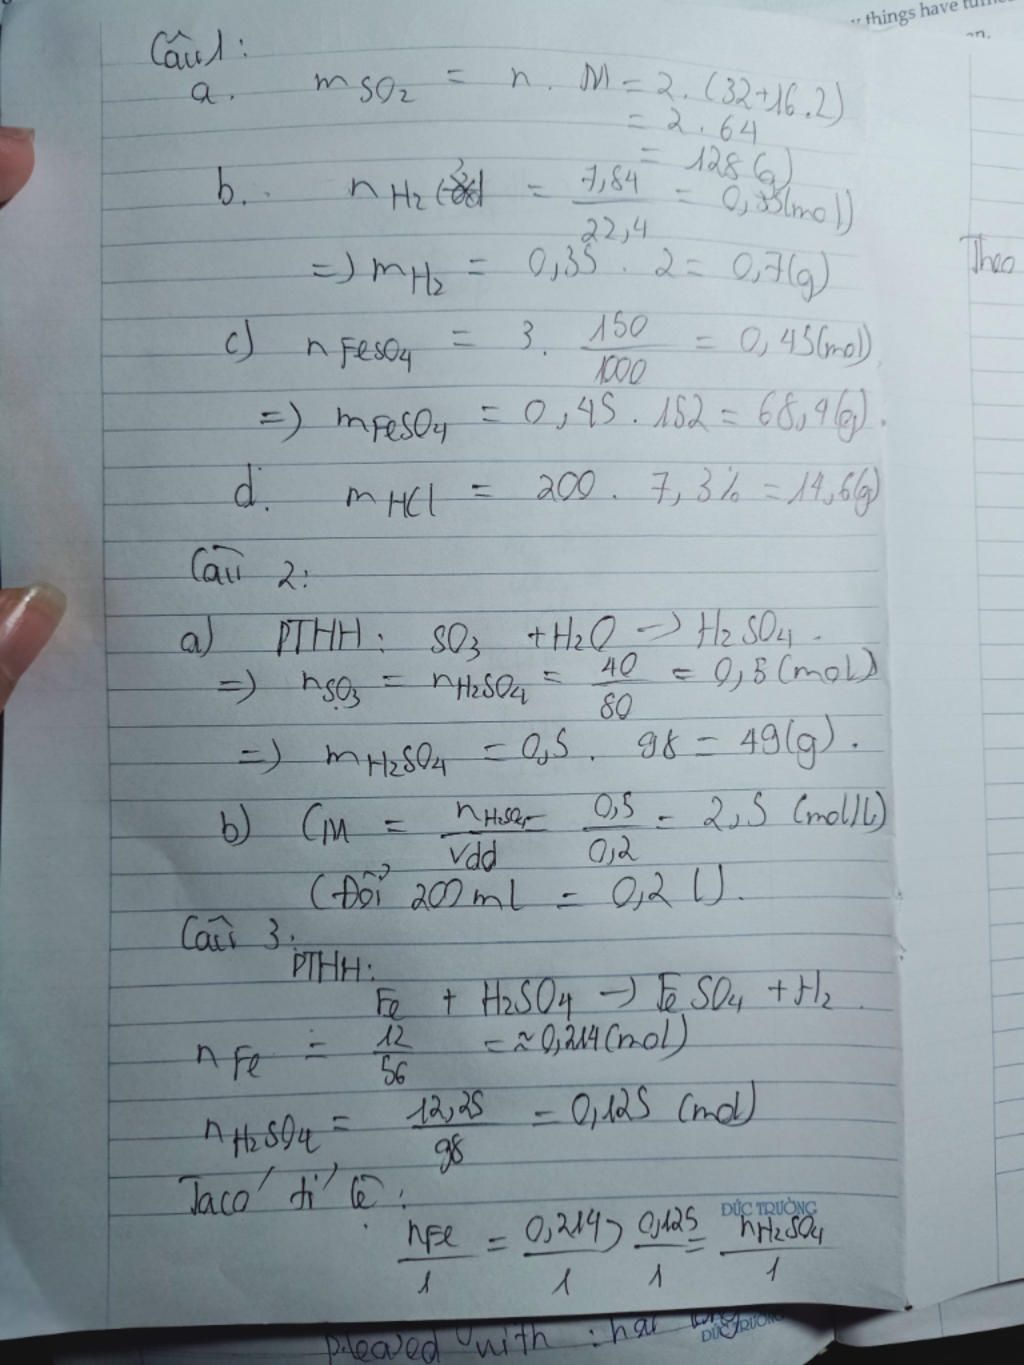 things have
Câu1:
a. mSO2 = n . M = 2.(32+16.2)
= 2.64
= 128(g)
b. nH2 = 7,84/22,4 = 0,35(mol)
=) mH2 = 0,35 . 2 = 0,7(g)
Theo
c) nFeSO4 = 3. 150/1000 = 0,45(mol)
=) mFeSO4 = 0,45 . 152 = 68,4(g).
d. mHCl = 200 . 7,3% = 14,6(g)
Câu 2:
a) PTHH: SO3 + H2O -> H2SO4.
=) nSO3 = nH2SO4 = 40/80 = 0,5(mol)
=) mH2SO4 = 0,5 . 98 = 49(g).
b) CM = nH2SO4/Vdd = 0,5/0,2 = 2,5 (mol/L)
(Đổi 200ml = 0,2 L).
Câu 3:
PTHH:
Fe + H2SO4 -> FeSO4 + H2.
nFe = 12/56 = ≈ 0,214(mol)
nH2SO4 = 12,25/98 = 0,125 (mol)
Ta có tỉ lệ:
ĐỨC TRƯỜNG
nFe/1 = 0,214/1 > 0,125/1 = nH2SO4/1
pleased with : hai
ĐỨC TRƯỜNG